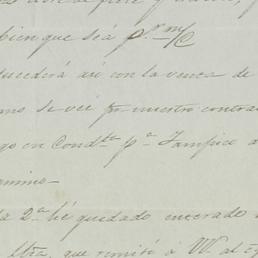 bien que sea p.r m/c
sucederá así con la venca de
se vee por nuestro contra
go en Cond.ta p.a Tampico a
amino.
la 2.a hé quedado enterado
Ltra, que remití á W. al